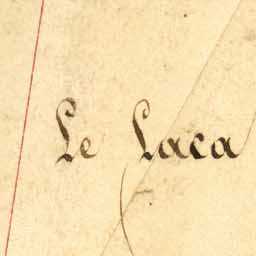 Le Laca